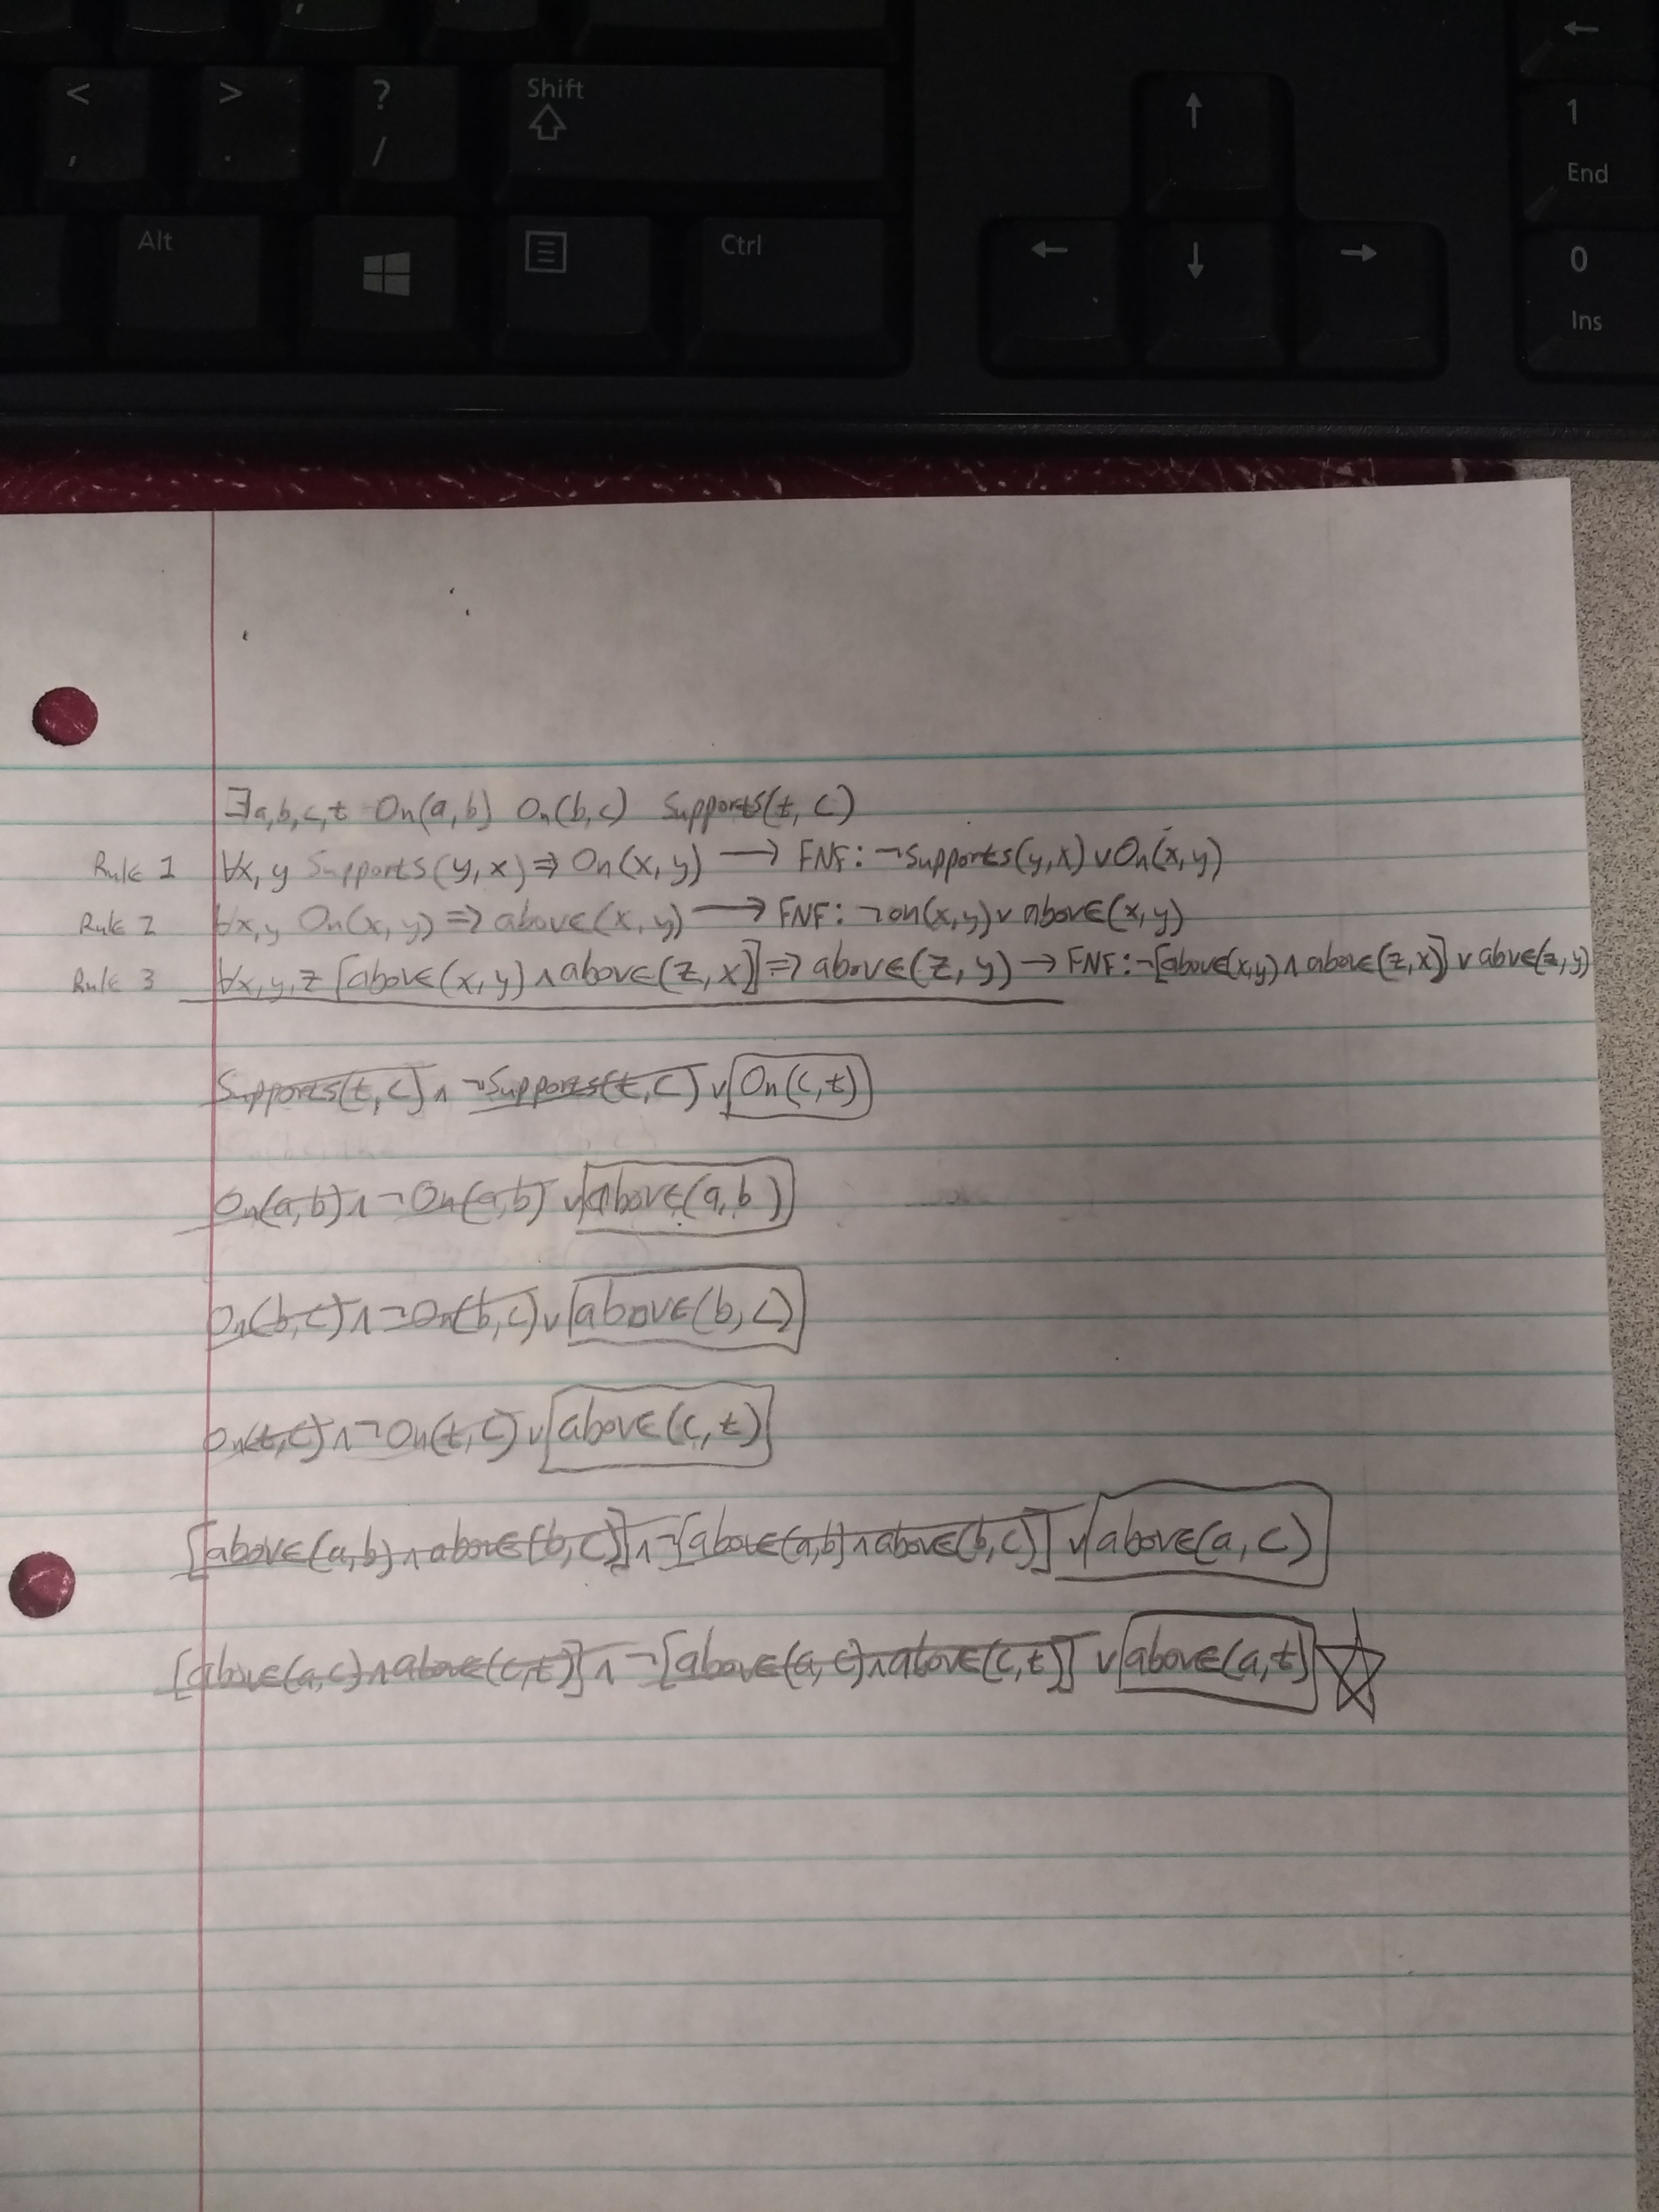 <
,
>
.
?
/
Shift
←
1
End
Alt
Ctrl
↑
←
↓
→
0
Ins
∃a,b,c,t On(a,b) On(b,c) Supports(t,c)
Rule 1 ∀x,y Supports(y,x) ⇒ On(x,y) → FNF: ¬Supports(y,x) ∨ On(x,y)
Rule 2 ∀x,y On(x,y) ⇒ above(x,y) → FNF: ¬on(x,y) ∨ above(x,y)
Rule 3 ∀x,y,z [above(x,y) ∧ above(z,x)] ⇒ above(z,y) → FNF: ¬[above(x,y) ∧ above(z,x)] ∨ above(z,y)
Supports(t,c) ∧ ¬Supports(t,c) ∨ On(c,t)
On(a,b) ∧ ¬On(a,b) ∨ above(a,b)
On(b,c) ∧ ¬On(b,c) ∨ above(b,c)
On(t,c) ∧ ¬On(t,c) ∨ above(c,t)
[above(a,b) ∧ above(b,c)] ∧ ¬[above(a,b) ∧ above(b,c)] ∨ above(a,c)
[above(a,c) ∧ above(c,t)] ∧ ¬[above(a,c) ∧ above(c,t)] ∨ above(a,t)